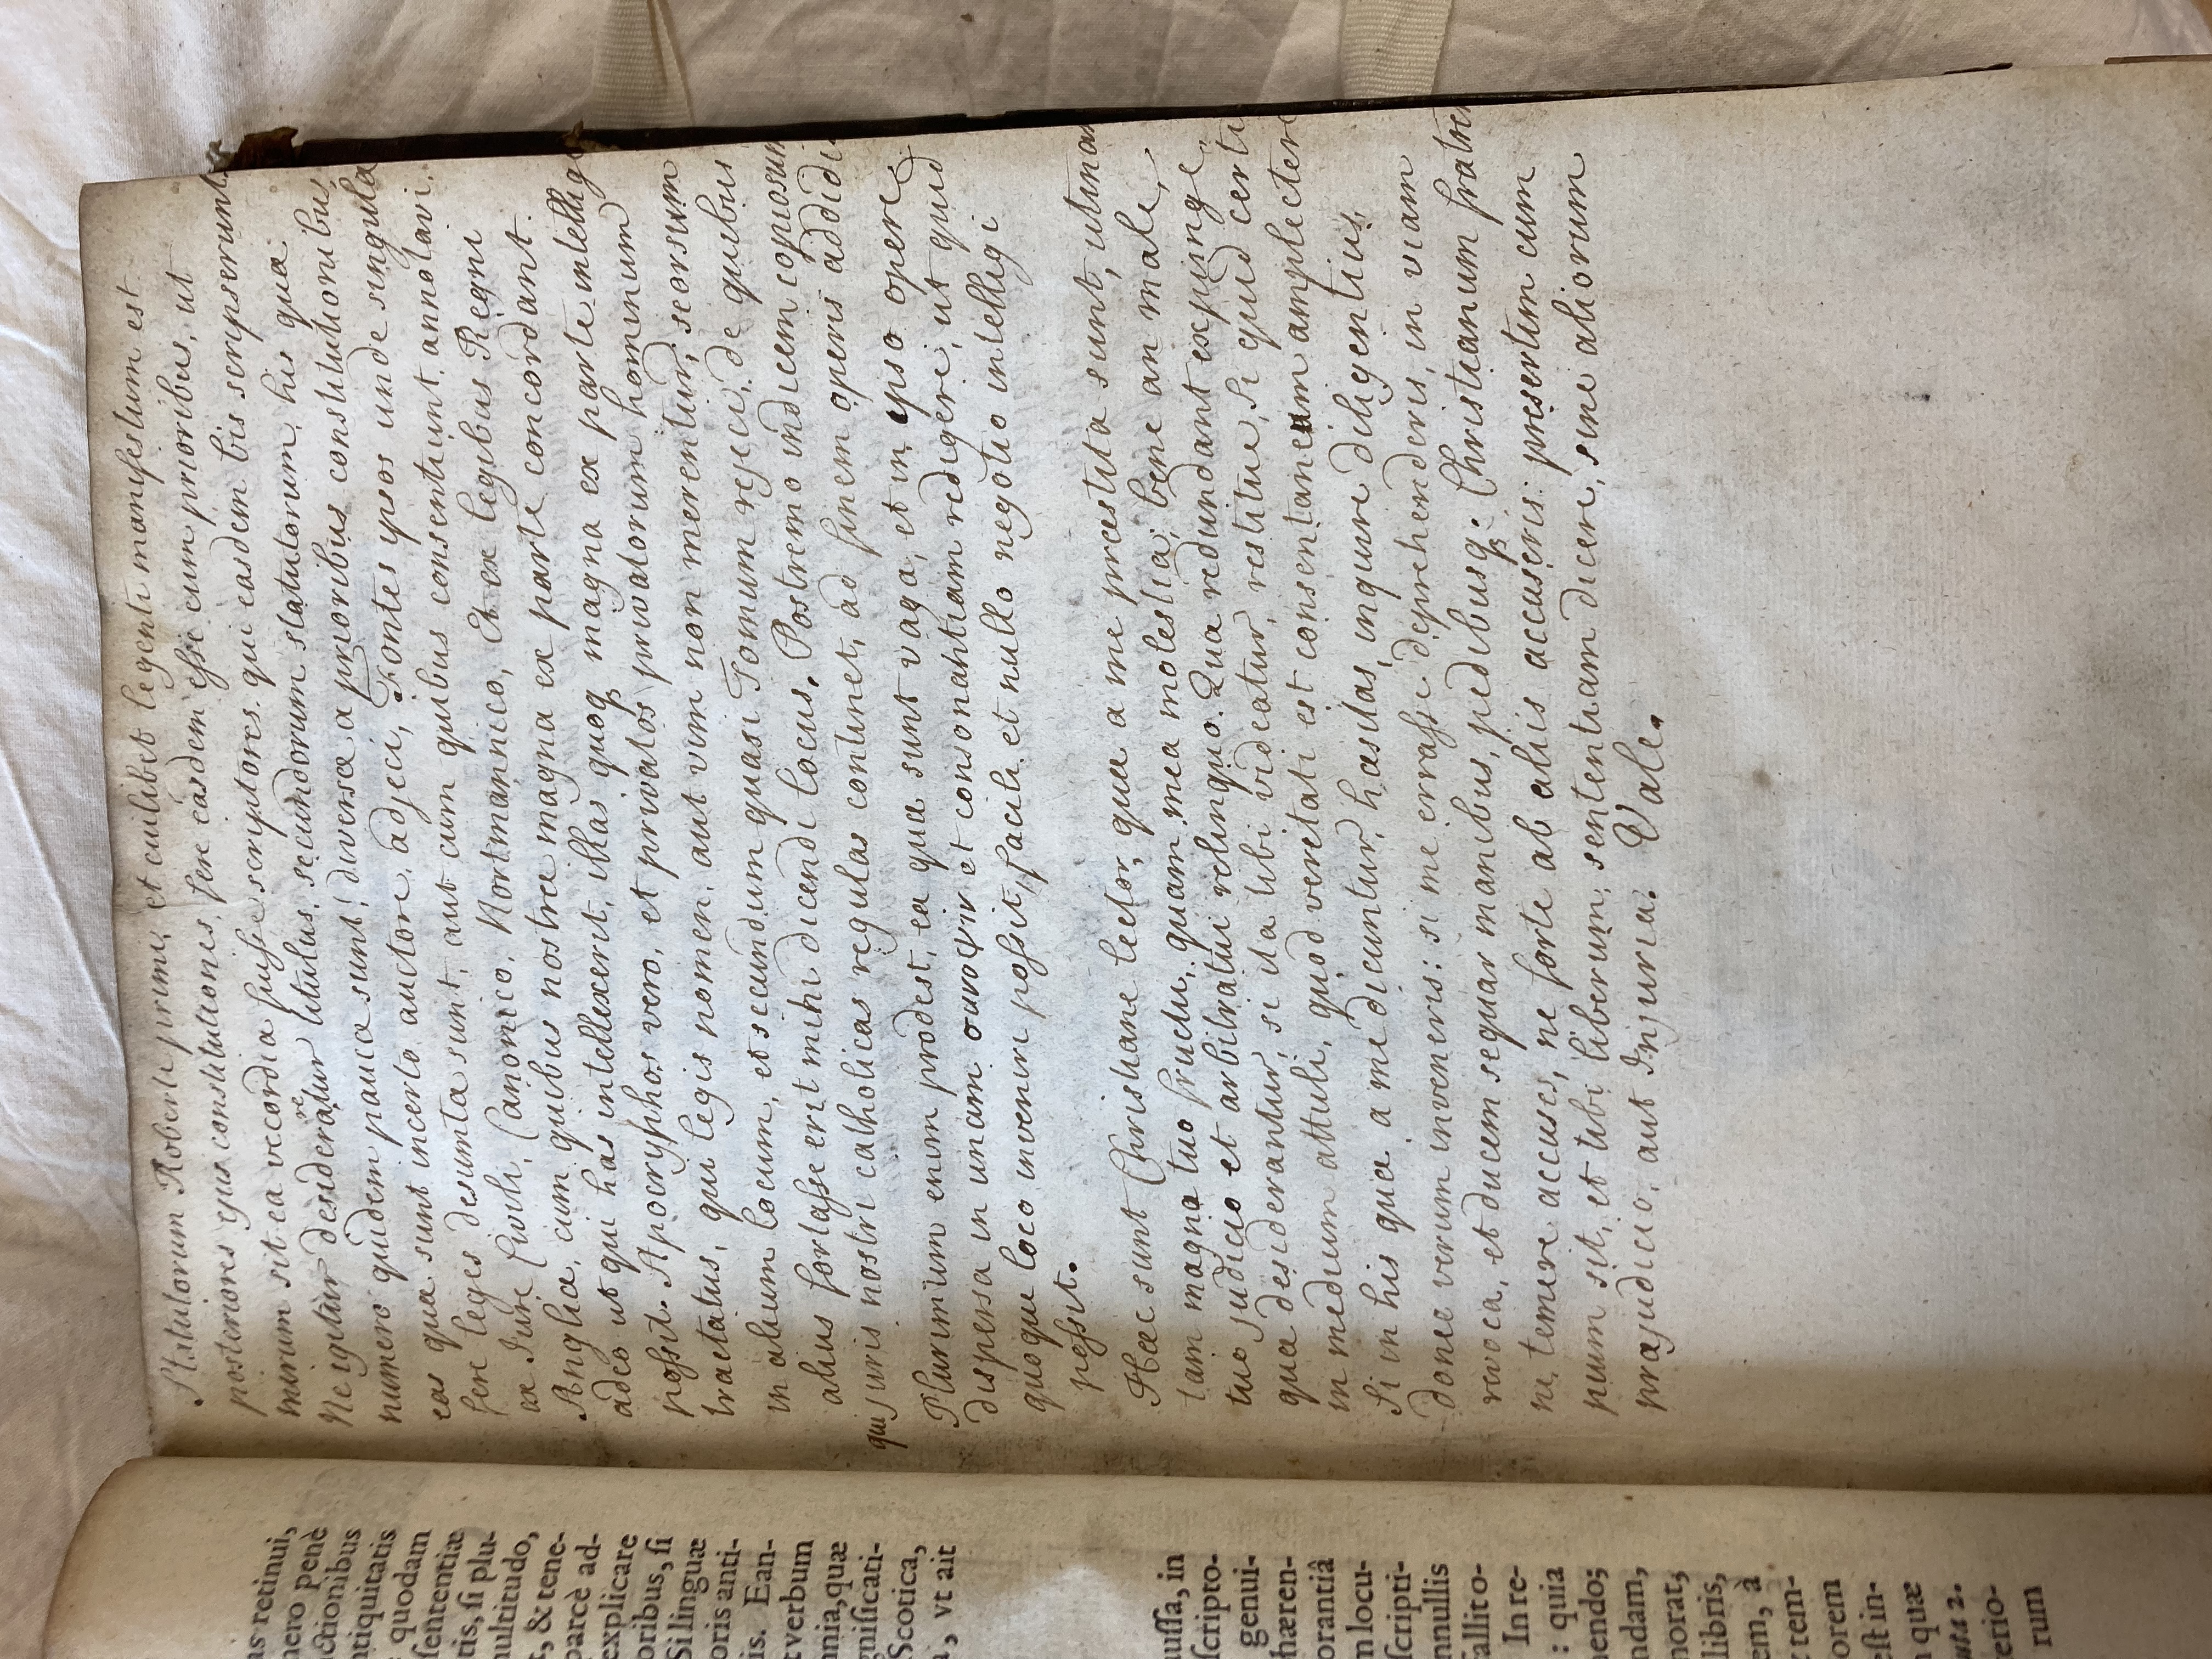 Statutorum Roberti primi, et cuilibet legenti manifestum est
posteriores ejus constitutiones, fere easdem esse cum prioribus, ut
mirum sit ea vecordia fuisse scriptores. qui easdem bis scripserunt.
Ne igitur desideraretur titulus secundorum statutorum, his quæ
numero quidem pauca sunt, diversa a prioribus constitutionibus,
eas quæ sunt incerto auctore, adjeci, Fontes ipsos unde singula
fere leges desumta sunt, aut cum quibus consentiunt annotavi.
ex Jure Civili, Canonico, Nortmannico, Et ex legibus Regni
Angliæ, cum quibus nostræ magna ex parte concordant.
adeo ut qui has intellexerit, illas quoq magna ex parte intellig
possit. Apocryphos vero, et privatos privatorum hominum
tractatus, qui legis nomen, aut vim non merentur, seorsum
in alium locum, et secundum quasi Tomum rejeci, de quibus
alius fortasse erit mihi dicendi locus. Postremo indicem copiosum
qui juris nostri catholicas regulas continet, ad finem operis addidi.
Plurimum enim prodest, ea quæ sunt vaga, et in ipso opere
dispersa in unam συνοψιν et consonantiam redigere, ut quid
quoque loco inveniri possit, facile et nullo negotio intelligi
possit.
Hæc sunt Christiane lector, quæ a me præstita sunt, utinam
tam magno tuo fructu, quam mea molestia; bene an male,
tuo judicio et arbitratui relinquo. Qua redundant expunge,
quæ desiderantur, si ita tibi videatur, restitue, si quid certi
in medium attuli, quod veritati est consentaneum amplectere
Si in his quæ a me dicuntur, hæsitas, inquire diligentius,
donec verum inveneris: si me errasse deprehenderis, in viam
revoca, et ducem sequar manibus, pedibusq: Christianum fratrem
ne temere accuses, ne forte ab aliis accuseris: presertim cum
pium sit, et tibi liberum, sententiam dicere, sine aliorum
præjudicio, aut Injuria. Vale.
as retinui,
nero penè
ctionibus
ntiquitatis
quodam
sententiæ
tis, si plu-
multitudo,
, & tene-
parcè ad-
explicare
oribus, si
Si linguæ
oris anti-
is. Ean-
t verbum
mnia, quæ
gnificati-
Scotica,
, vt ait
aussa, in
scripto-
genui-
hæren-
orantiâ
m locu-
scripti-
nnullis
allito-
In re-
: quia
nendo;
ndam,
norat;
libris,
em, à
r tem-
orem
est in-
n quæ
2.
erio-
rum